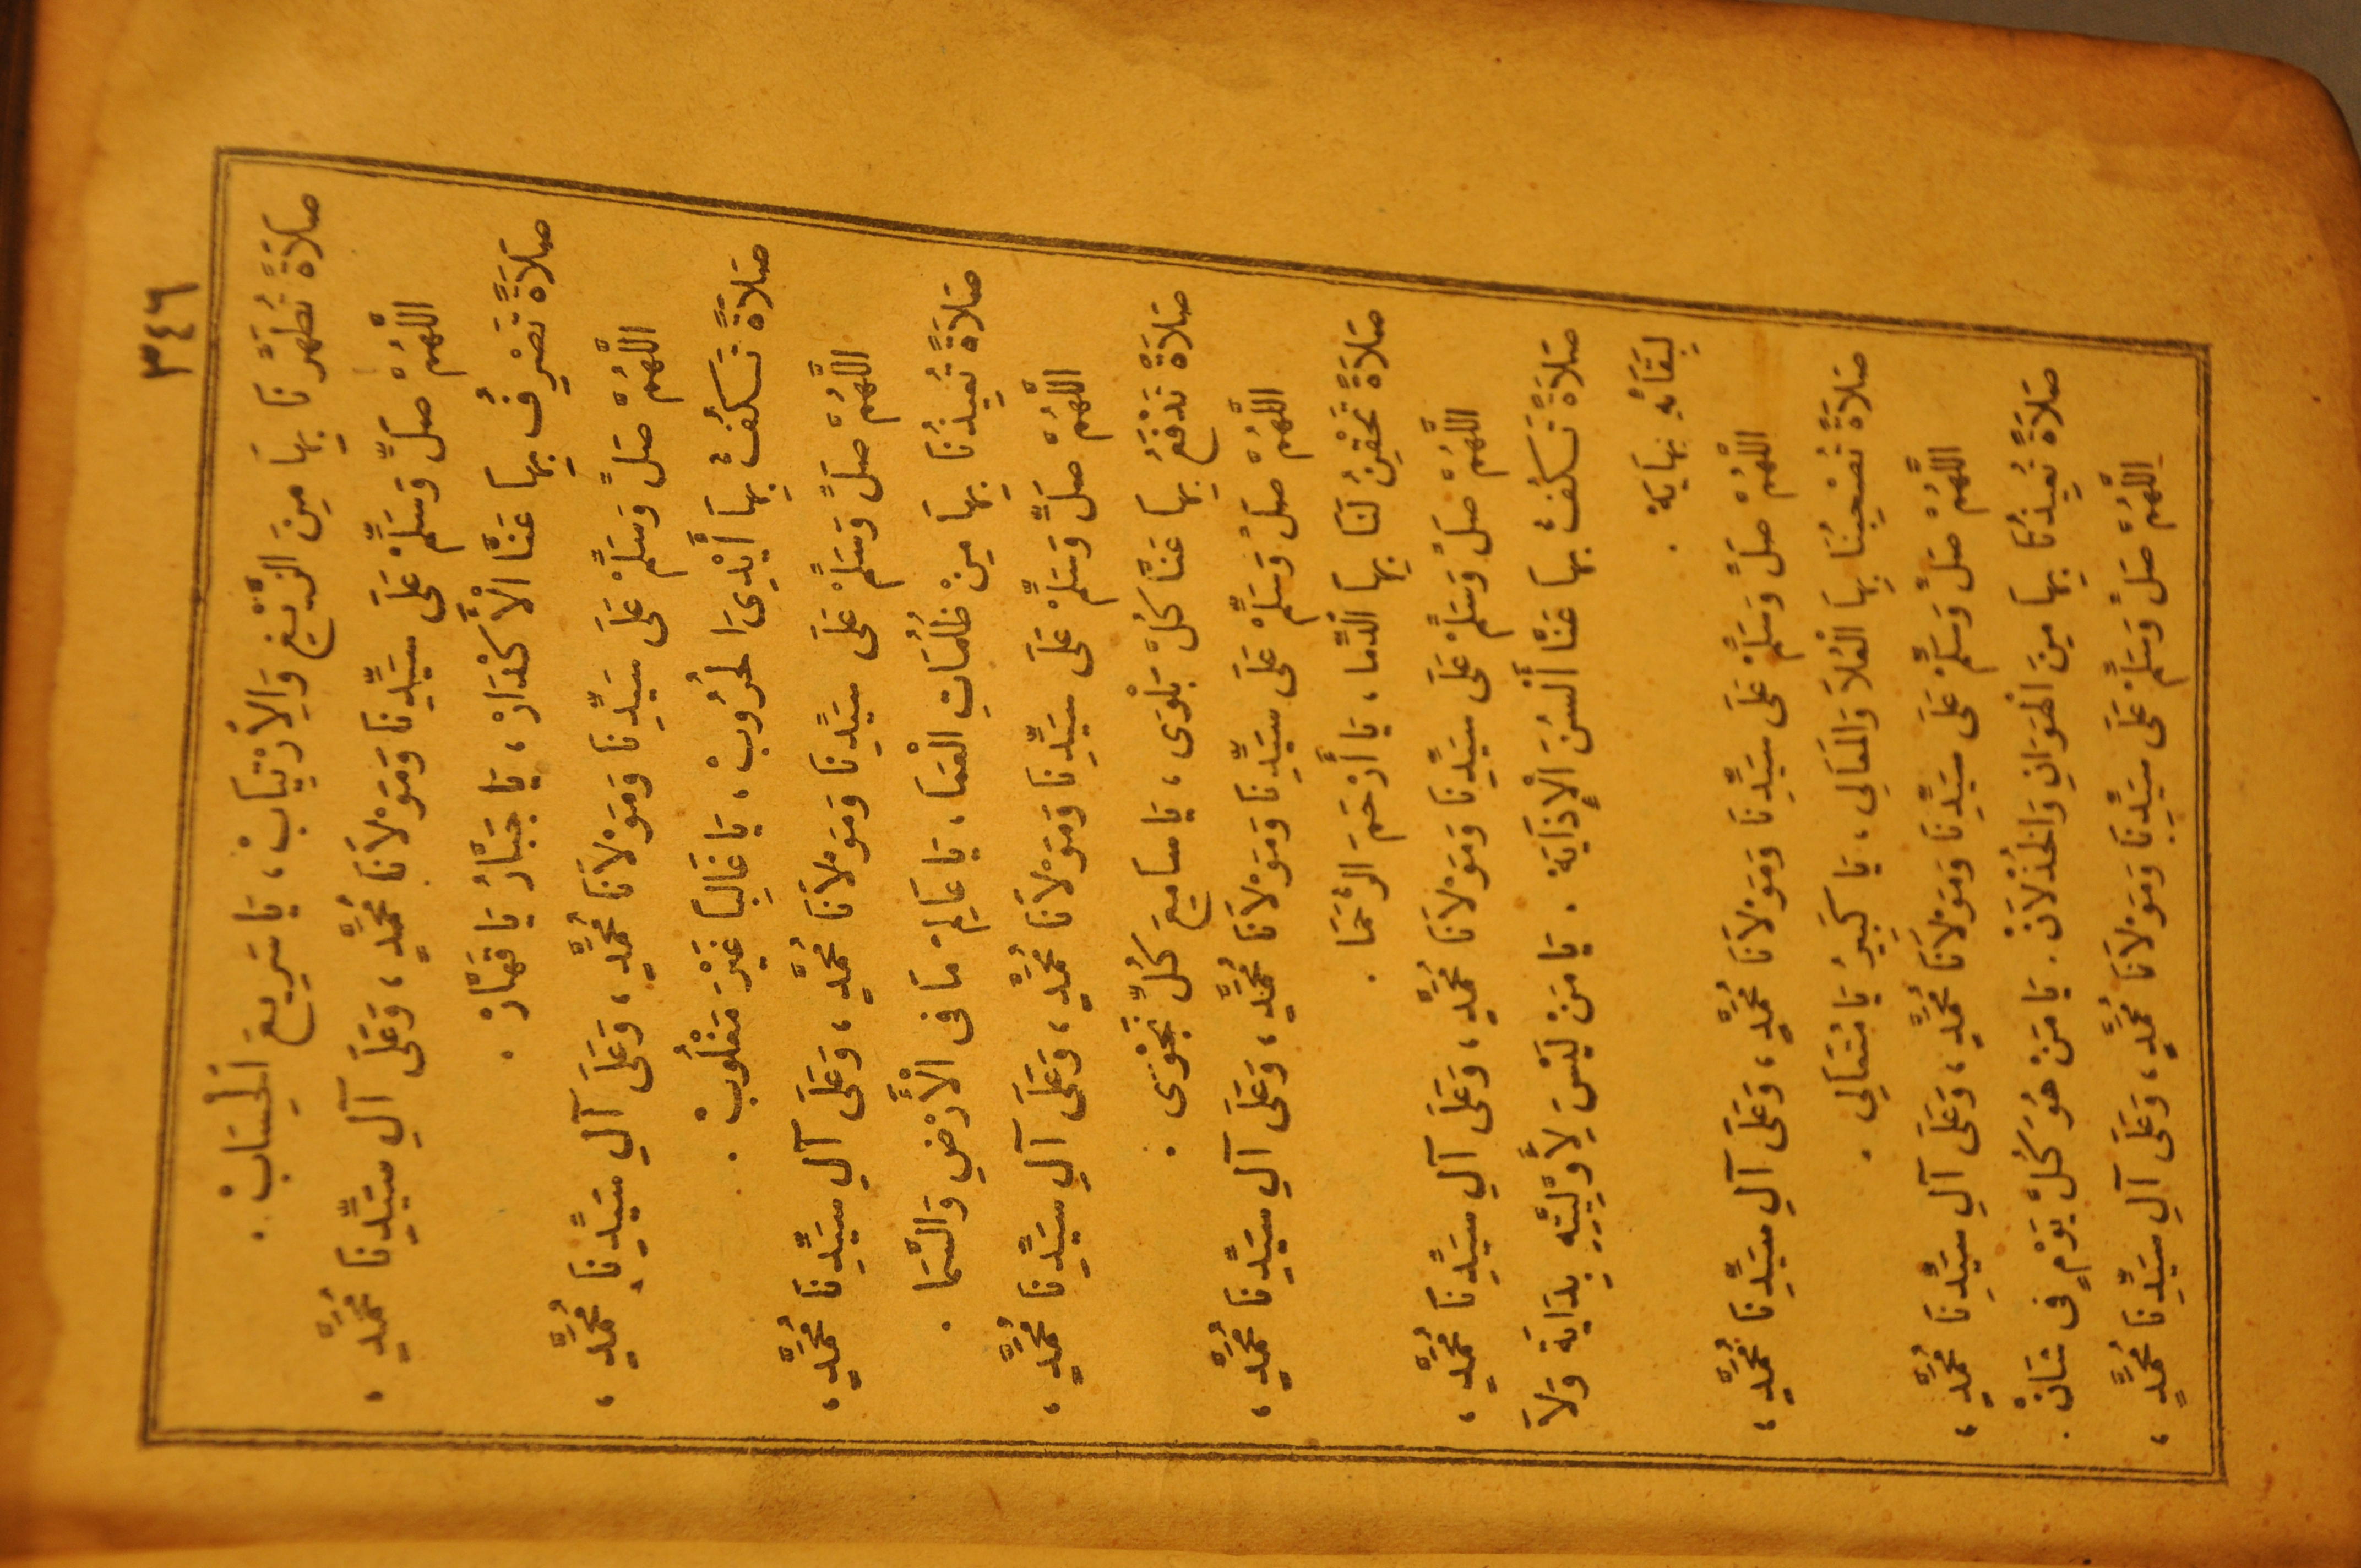 ٣٤٦
صَلاَةً تُطَهِّرُنَا بِهَا مِنَ الزَّيْغِ وَالاِرْتِيَابْ ، يَا سَرِيعَ الْحِسَابْ .
اللَّهُمَّ صَلِّ وَسَلِّمْ عَلَى سَيِّدِنَا وَمَوْلاَنَا مُحَمَّدٍ ، وَعَلَى آلِ سَيِّدِنَا مُحَمَّدٍ ،
صَلاَةً تَصْرِفُ بِهَا عَنَّا الْأَكْدَارْ ، يَا جَبَّارُ يَا قَهَّارْ .
اللَّهُمَّ صَلِّ وَسَلِّمْ عَلَى سَيِّدِنَا وَمَوْلاَنَا مُحَمَّدٍ ، وَعَلَى آلِ سَيِّدِنَا مُحَمَّدٍ ،
صَلاَةً تَكُفُّ بِهَا أَيْدِىَ الْحُرُوبْ ، يَا غَالِبًا غَيْرَ مَغْلُوبْ .
اللَّهُمَّ صَلِّ وَسَلِّمْ عَلَى سَيِّدِنَا وَمَوْلاَنَا مُحَمَّدٍ ، وَعَلَى آلِ سَيِّدِنَا مُحَمَّدٍ ،
صَلاَةً تُعِيذُنَا بِهَا مِنْ ظُلُمَاتِ الْعَمَا ، يَا عَالِمَ مَا فِى الْأَرْضِ وَالسَّمَا .
اللَّهُمَّ صَلِّ وَسَلِّمْ عَلَى سَيِّدِنَا وَمَوْلاَنَا مُحَمَّدٍ ، وَعَلَى آلِ سَيِّدِنَا مُحَمَّدٍ ،
صَلاَةً تَدْفَعُ بِهَا عَنَّا كُلَّ بَلْوَى ، يَا سَامِعَ كُلِّ نَجْوَى .
اللَّهُمَّ صَلِّ وَسَلِّمْ عَلَى سَيِّدِنَا وَمَوْلاَنَا مُحَمَّدٍ ، وَعَلَى آلِ سَيِّدِنَا مُحَمَّدٍ ،
صَلاَةً تَحْقِنُ لَنَا بِهَا الدِّمَا ، يَا أَرْحَمَ الرُّحَمَا .
اللَّهُمَّ صَلِّ وَسَلِّمْ عَلَى سَيِّدِنَا وَمَوْلاَنَا مُحَمَّدٍ ، وَعَلَى آلِ سَيِّدِنَا مُحَمَّدٍ ،
صَلاَةً تَكُفُّ بِهَا عَنَّا أَلْسُنَ الْإِذَايَةْ . يَا مَنْ لَيْسَ لِأَوَّلِيَّتِهِ بِدَايَة وَلاَ
لِبَقَائِهِ نِهَايَةْ .
اللَّهُمَّ صَلِّ وَسَلِّمْ عَلَى سَيِّدِنَا وَمَوْلاَنَا مُحَمَّدٍ ، وَعَلَى آلِ سَيِّدِنَا مُحَمَّدٍ ،
صَلاَةً تُصْحِبُنَا بِهَا الْعُلاَ وَالْمَعَالِى ، يَا كَبِيرُ يَا مُتَعَالِى .
اللَّهُمَّ صَلِّ وَسَلِّمْ عَلَى سَيِّدِنَا وَمَوْلاَنَا مُحَمَّدٍ ، وَعَلَى آلِ سَيِّدِنَا مُحَمَّدٍ ،
صَلاَةً تُعِيذُنَا بِهَا مِنَ الْهَوَانِ وَالْخُذْلاَنْ . يَا مَنْ هُوَ كُلَّ يَوْمٍ فِى شَانْ .
اللَّهُمَّ صَلِّ وَسَلِّمْ عَلَى سَيِّدِنَا وَمَوْلاَنَا مُحَمَّدٍ ، وَعَلَى آلِ سَيِّدِنَا مُحَمَّدٍ ،